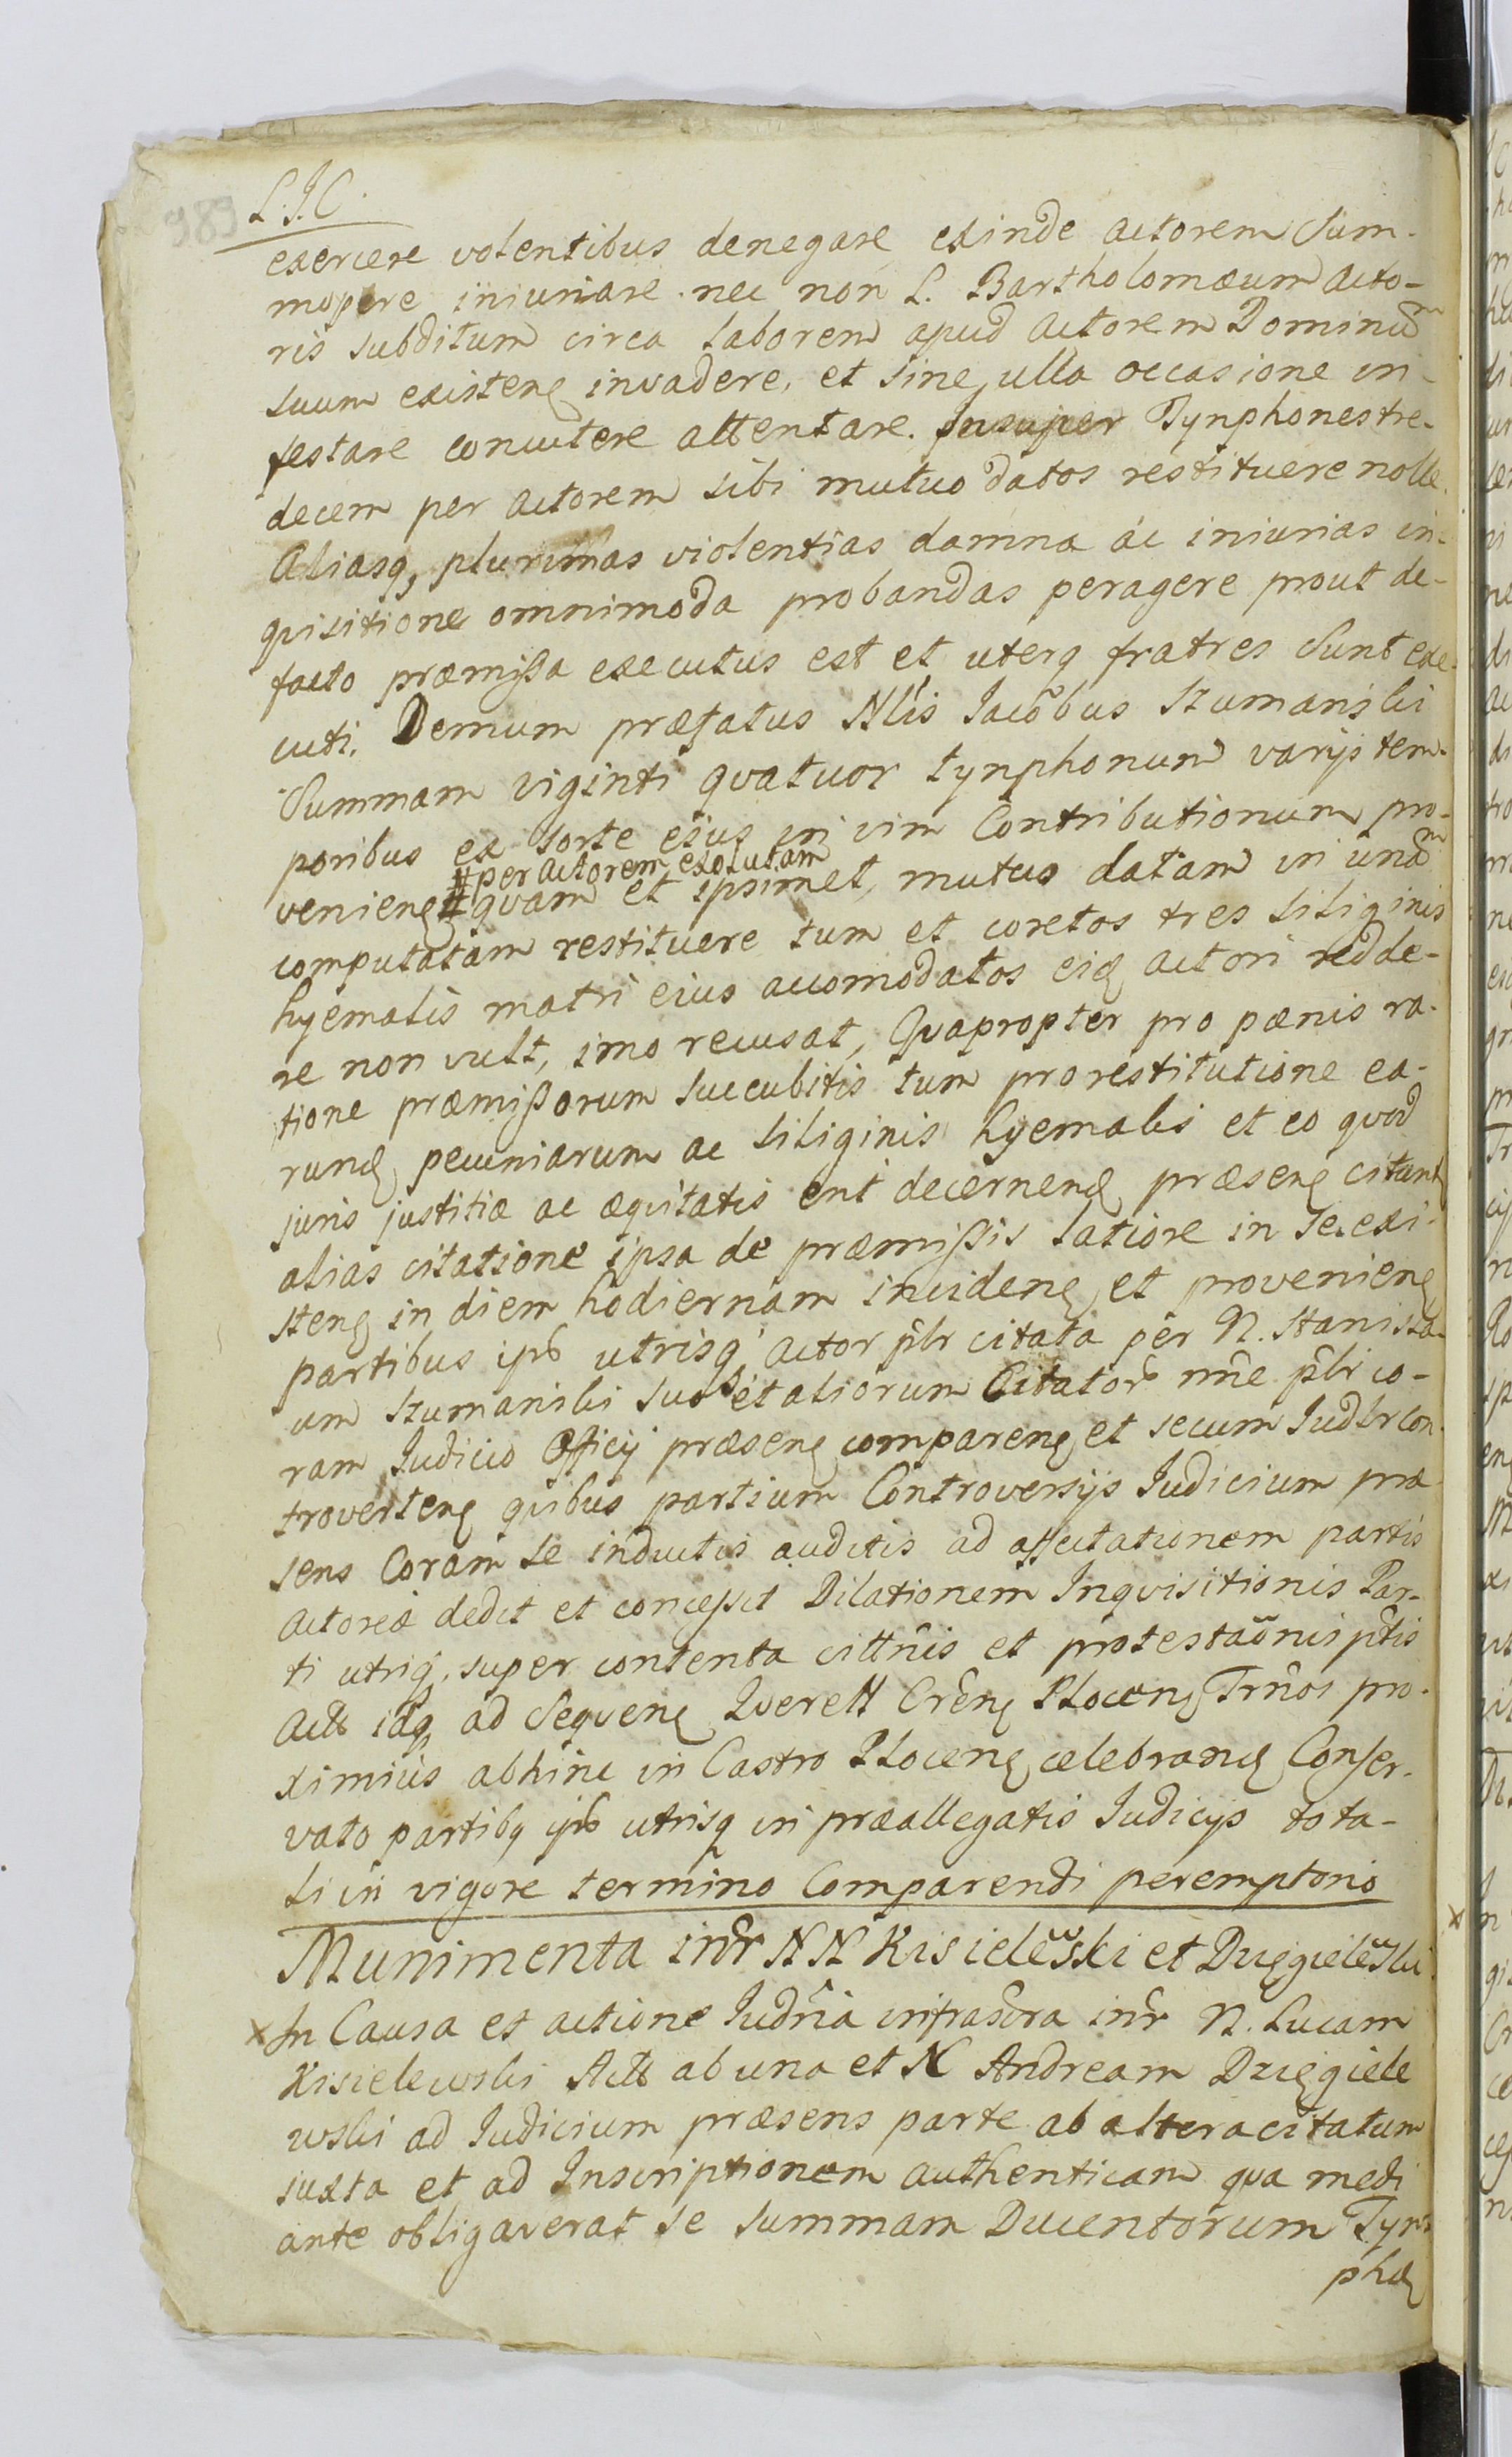 989
L.J.C.
exercere volentibus denegare exinde actorem sum-
mopere iniuriare. nec non L. Bartholomæum acto-
ris subditum circa laborem apud actorem Dominū
suum existenꝫ invadere, et sine ulla occasione in-
festare concutere attentare. Insuper Tynphones tre-
decem per actorem sibi mutuo datos restituere nolle.
Aliasqꝫ plurimas violentias damna ac iniurias in-
quisitione omnimoda probandas peragere prout de-
facto præmissa executus est et uterqꝫ fratres sunt exe-
cuti. Demum præfatus Nlis Jacobus Szumanski
Summam viginti quatuor tynphonum varijs tem-
poribus ex sorte ejus in vim Contributionum pro-
# per actorem exolutam
venienꝫ # quam et ipsimet, mutuo datam in unā
computatam restituere tum et coretos tres siliginis
hyemalis matri eius accomodatos eidꝫ actori redde-
re non vult, imo recusat, Quapropter pro pænis ra-
tione præmissorum succubitis tum pro restitutione ea-
rundꝫ pecuniarum ac siliginis hyemalis et eo quod
juris justitiæ ac æquitatis erit decernendꝫ præsenꝫ citant
alias citatione ipsa de præmissis latiore in se exi-
stenꝫ in diem hodiernam incidenꝫ et provenienꝫ
partibus ipīs utrisqꝫ actor plr citata per N. Stanisla-
um Szumanski suo et aliorum Citator nñe plr co-
ram Judicio Officij præsenꝫ comparenꝫ et secum Judlr con-
trovertenꝫ quibus partium Controversijs Judicium præ-
sens Coram se inductis auditis ad affectationem partis
actoreæ dedit et concessit Dilationem Inquisitionis Par-
ti utriqꝫ super contenta cittñis et protestaõnis pttis
Actt idqꝫ ad sequenꝫ Querell Crenꝫ Plocenꝫ Trños pro-
ximius abhinc in Castro Plocenꝫ celebrandꝫ Conser-
vato partibꝫ ipīs utrisqꝫ in præallegatis Judicijs tota-
li in vigore termino Comparendi peremptorio
Munimenta intr NN Kisielewski et Dzięgielewski
x In Causa et actione Judria infrascra intr N. Lucam
Kisielewski Actt ab una et N Andream Dzięgiele
wski ad Judicium præsens parte ab altera citatum
juxta et ad Inscriptionem authenticam qua medi
ante obligaverat se summam Ducentorum Tyn-
phꝫ